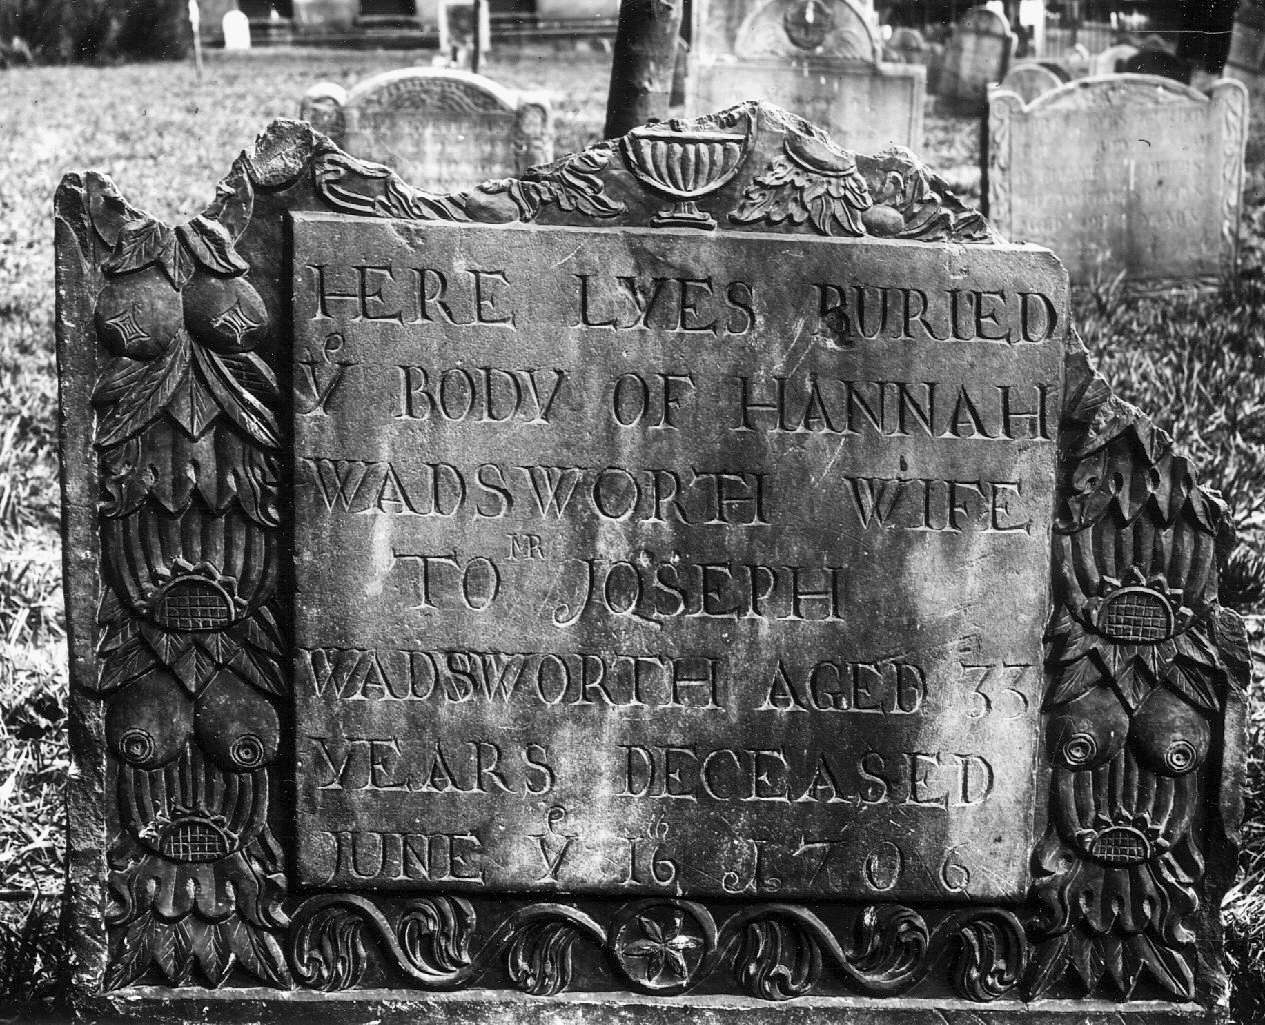 HERE LYES BURIED
Yᵉ BODY OF HANNAH
WADSWORTH WIFE
TO MR JOSEPH
WADSWORTH AGED 33
YEARS DECEASED
JUNE Yᵉ 16 1706